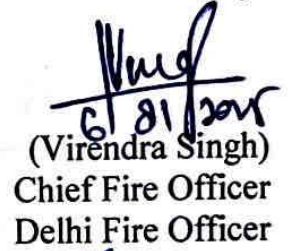 6/8/2025
(Virendra Singh)
Chief Fire Officer
Delhi Fire Officer